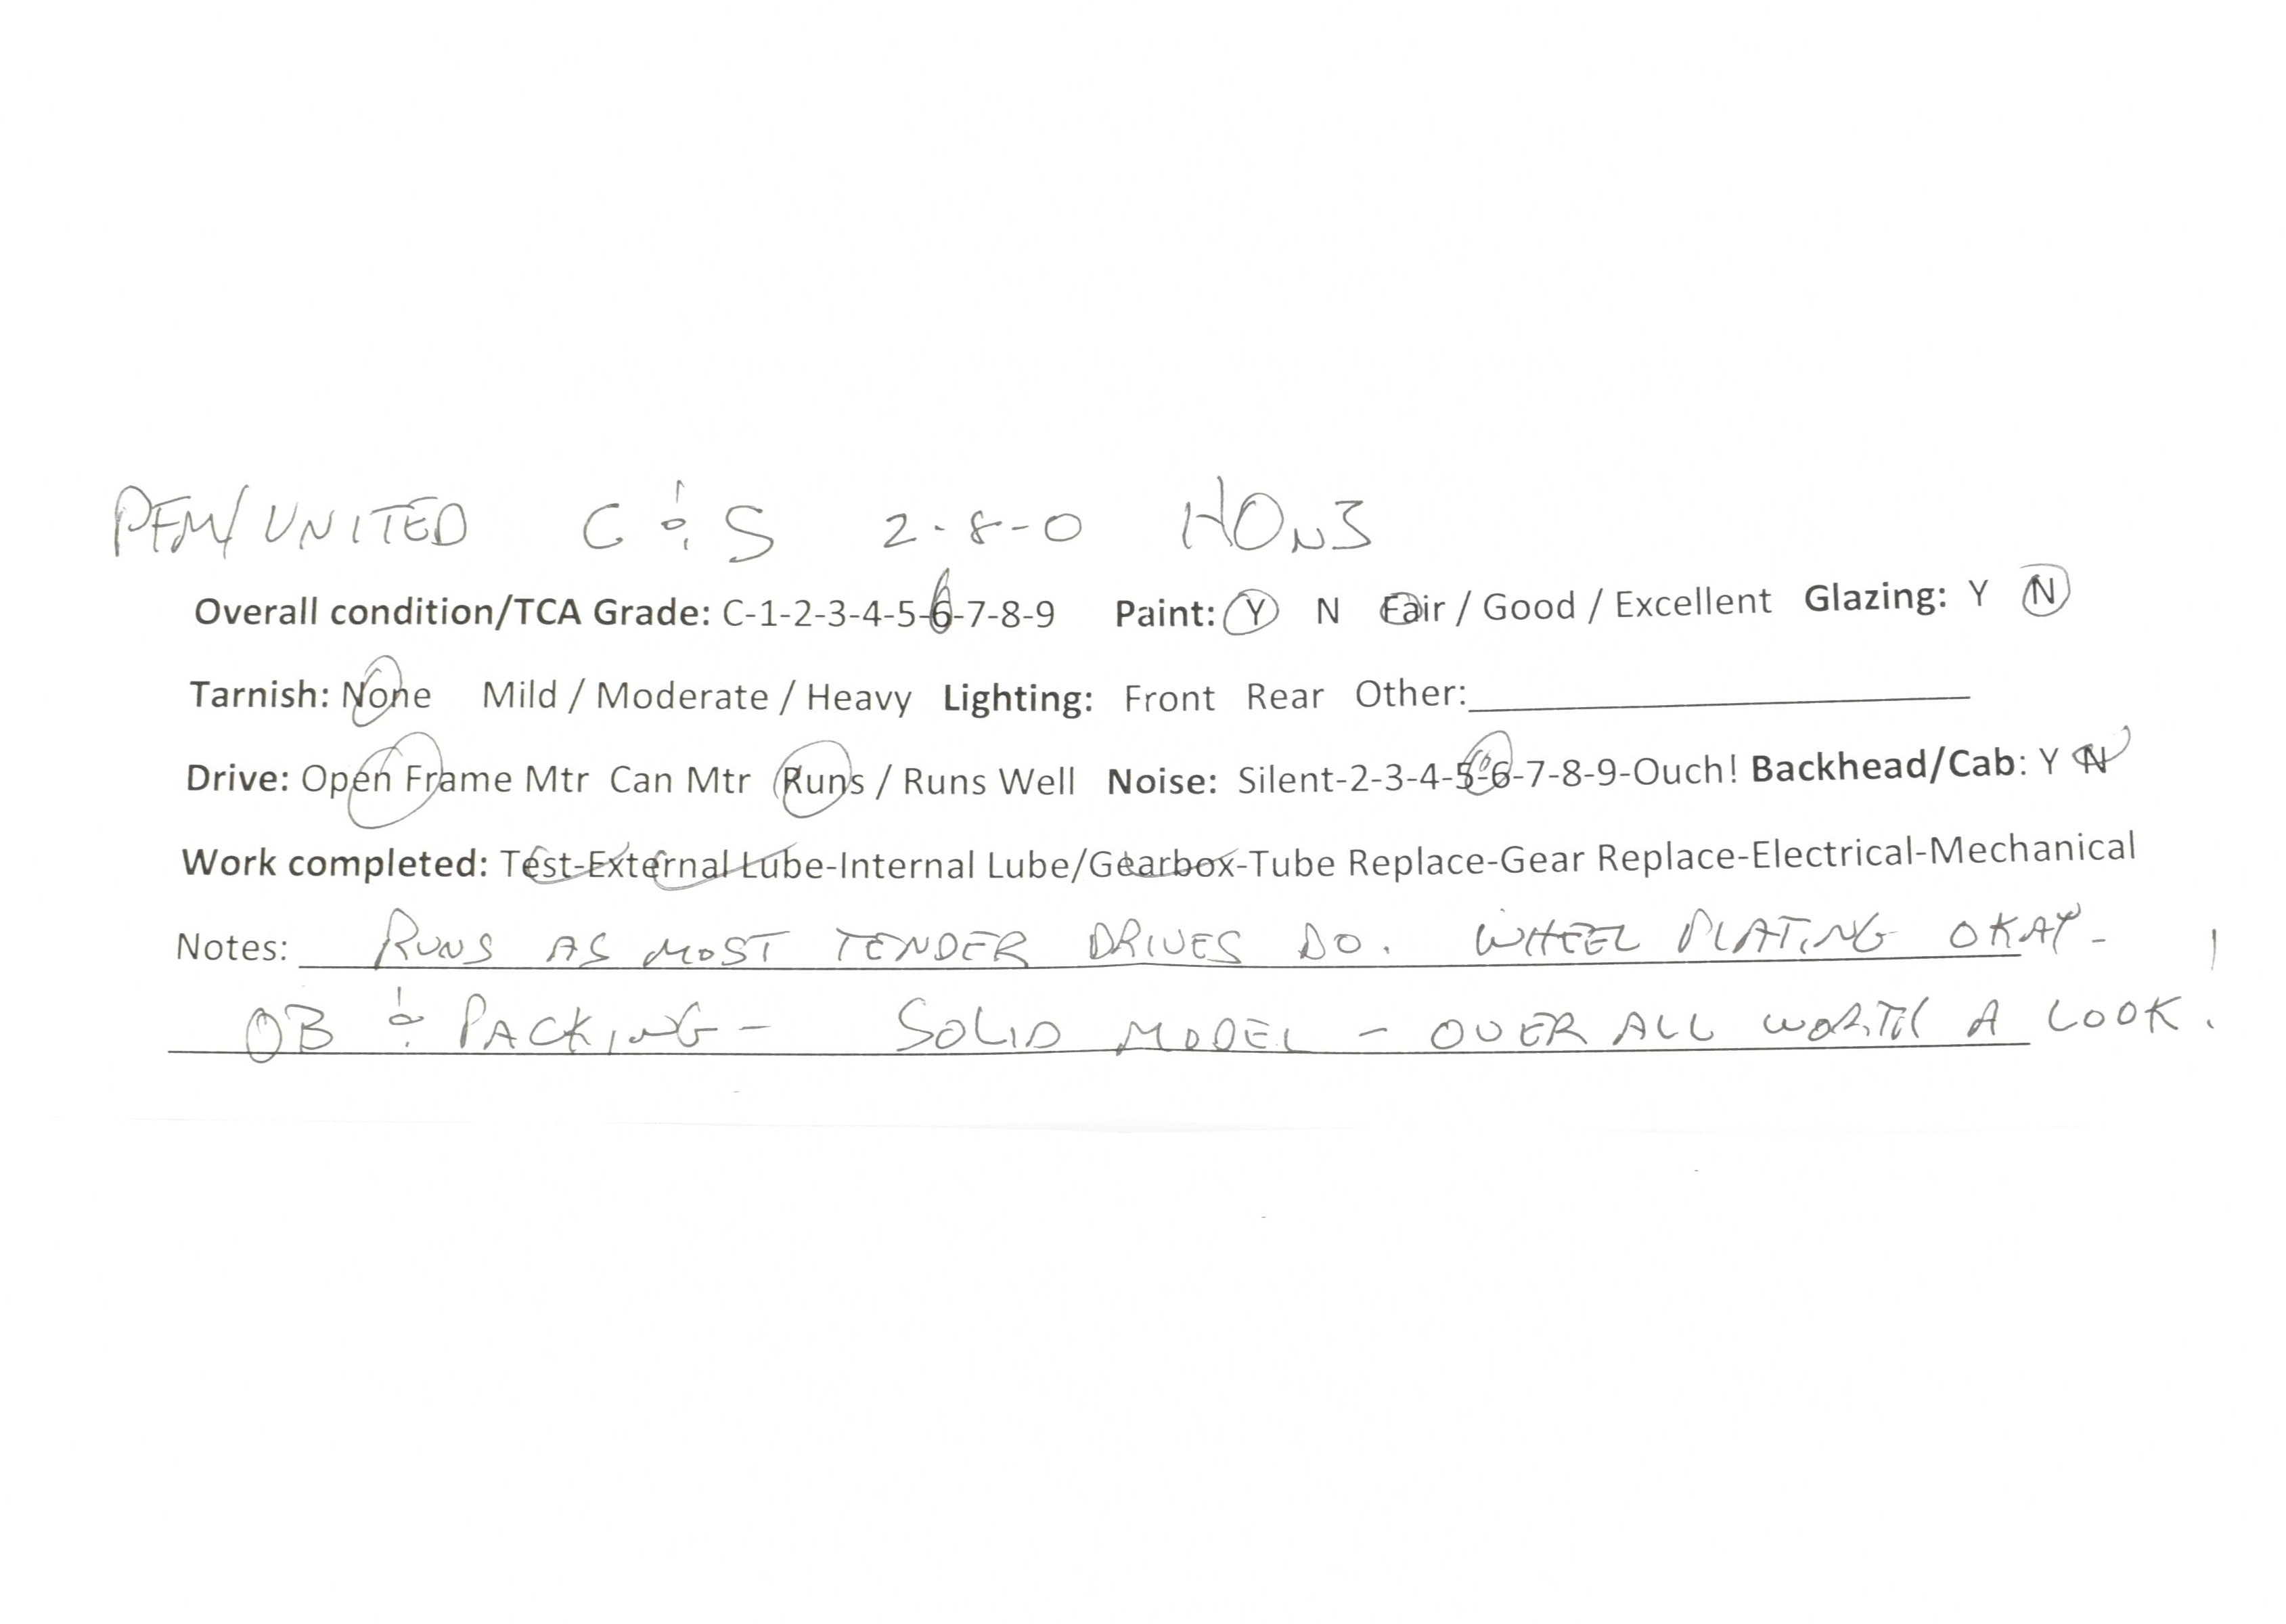 PFM/UNITED C & S 2-8-0 HOn3
Overall condition/TCA Grade: C-1-2-3-4-5-6-7-8-9 Paint: Y N Fair / Good / Excellent Glazing: Y N
Tarnish: None Mild / Moderate / Heavy Lighting: Front Rear Other:
Drive: Open Frame Mtr Can Mtr Runs / Runs Well Noise: Silent-2-3-4-5-6-7-8-9-Ouch! Backhead/Cab: Y N
Work completed: Test-External Lube-Internal Lube/Gearbox-Tube Replace-Gear Replace-Electrical-Mechanical
Notes: RUNS AS MOST TENDER DRIVES DO. WHEEL PLATING OKAY-
OB & PACKING - SOLID MODEL - OVER ALL WORTH A LOOK.